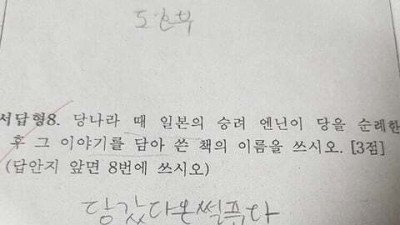 도한부
서답형8. 당나라 때 일본의 승려 엔닌이 당을 순례한
후 그 이야기를 담아 쓴 책의 이름을 쓰시오. [3점]
(답안지 앞면 8번에 쓰시오)
당갔다온썰푼다